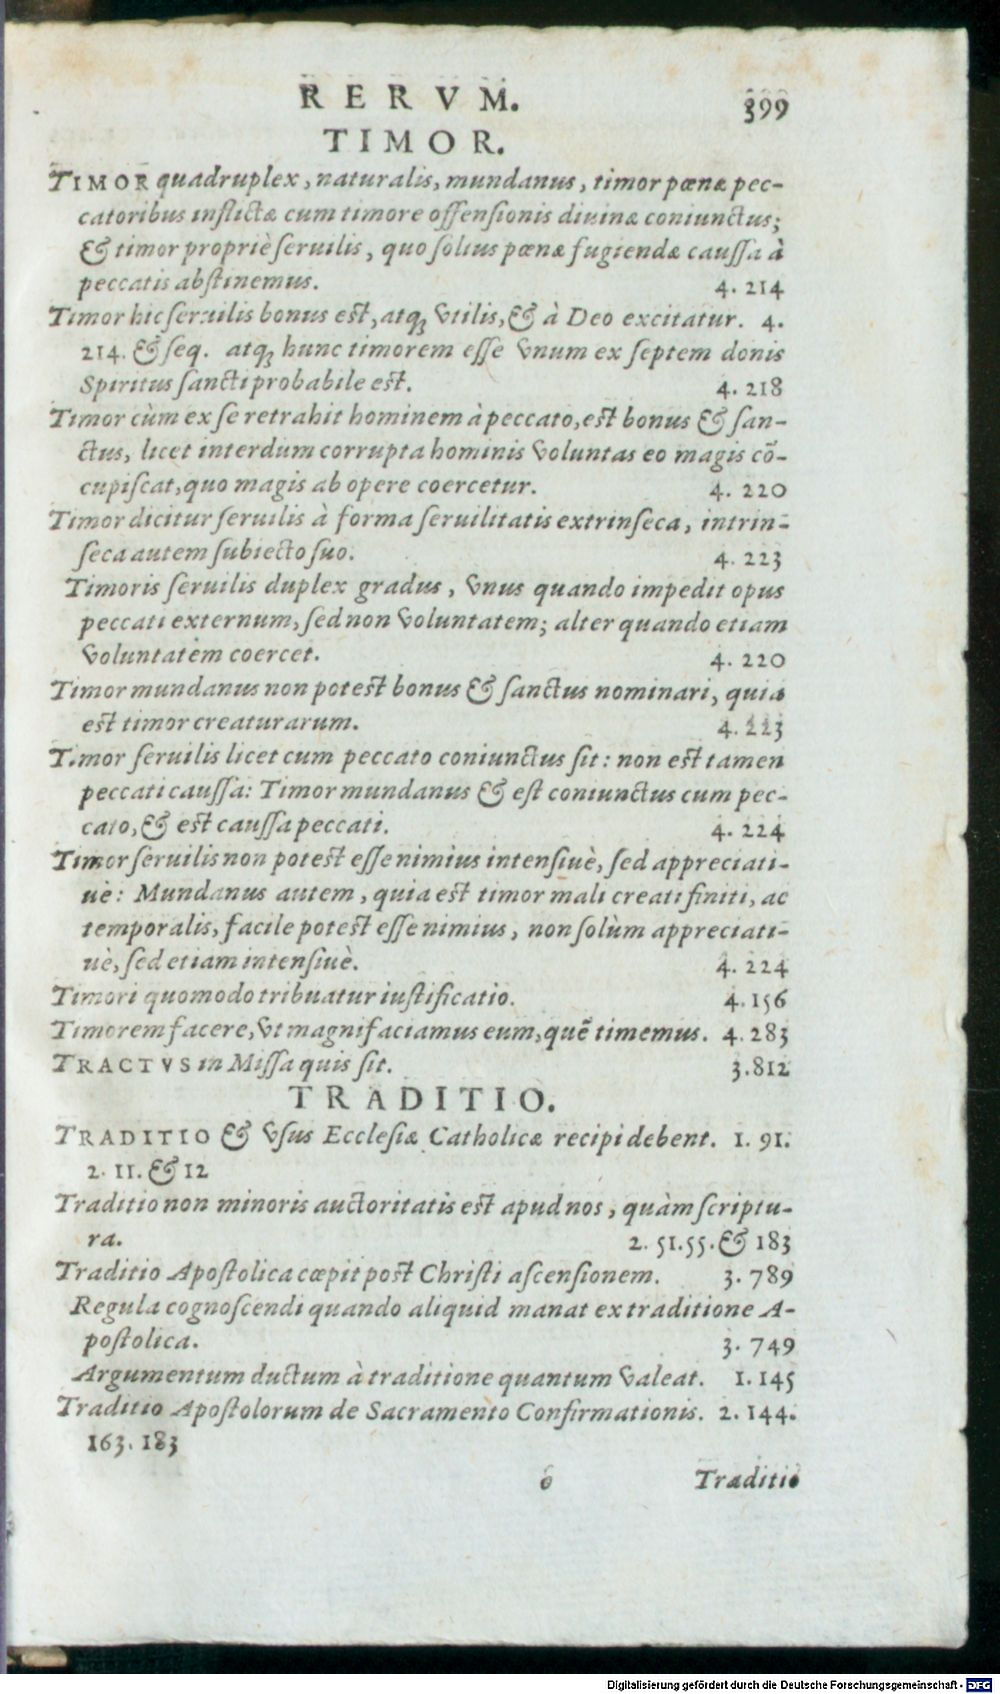 RERVM. 399
TIMOR.
TIMOR quadruplex, naturalis, mundanus, timor pœnæ pec-
catoribus inflictæ cum timore offensionis diuinæ coniunctus;
& timor propriè seruilis, quo solius pœnæ fugiendæ caussa à
peccatis abstinemus. 4. 214
Timor hic seruilis bonus est, atq; vtilis, & à Deo excitatur. 4.
214. & seq. atq; hunc timorem esse vnum ex septem donis
Spiritus sancti probabile est. 4. 218
Timor cùm ex se retrahit hominem à peccato, est bonus & san-
ctus, licet interdum corrupta hominis voluntas eo magis cõ-
cupiscat, quo magis ab opere coercetur. 4. 220
Timor dicitur seruilis à forma seruilitatis extrinseca, intrin-
seca autem subiecto suo. 4. 223
Timoris seruilis duplex gradus, vnus quando impedit opus
peccati externum, sed non voluntatem; alter quando etiam
voluntatem coercet. 4. 220
Timor mundanus non potest bonus & sanctus nominari, quia
est timor creaturarum. 4. 223
T.mor seruilis licet cum peccato coniunctus sit: non est tamen
peccati caussa: Timor mundanus & est coniunctus cum pec-
cato, & est caussa peccati. 4. 224
Timor seruilis non potest esse nimius intensiuè, sed appreciati-
uè: Mundanus autem, quia est timor mali creati finiti, ac
temporalis, facile potest esse nimius, non solùm appreciati-
uè, sed etiam intensiuè. 4. 224
Timori quomodo tribuatur iustificatio. 4. 156
Timorem facere, vt magnifaciamus eum, quẽ timemus. 4. 283
TRACTVS in Missa quis sit. 3.812
TRADITIO.
TRADITIO & vsus Ecclesiæ Catholicæ recipi debent. 1. 91.
2. 11. & 12
Traditio non minoris auctoritatis est apud nos, quàm scriptu-
ra. 2. 51.55. & 183
Traditio Apostolica cœpit post Christi ascensionem. 3. 789
Regula cognoscendi quando aliquid manat ex traditione A-
postolica. 3. 749
Argumentum ductum à traditione quantum valeat. 1. 145
Traditio Apostolorum de Sacramento Confirmationis. 2. 144.
163. 183
õ Traditio
Digitalisierung gefördert durch die Deutsche Forschungsgemeinschaft - DFG